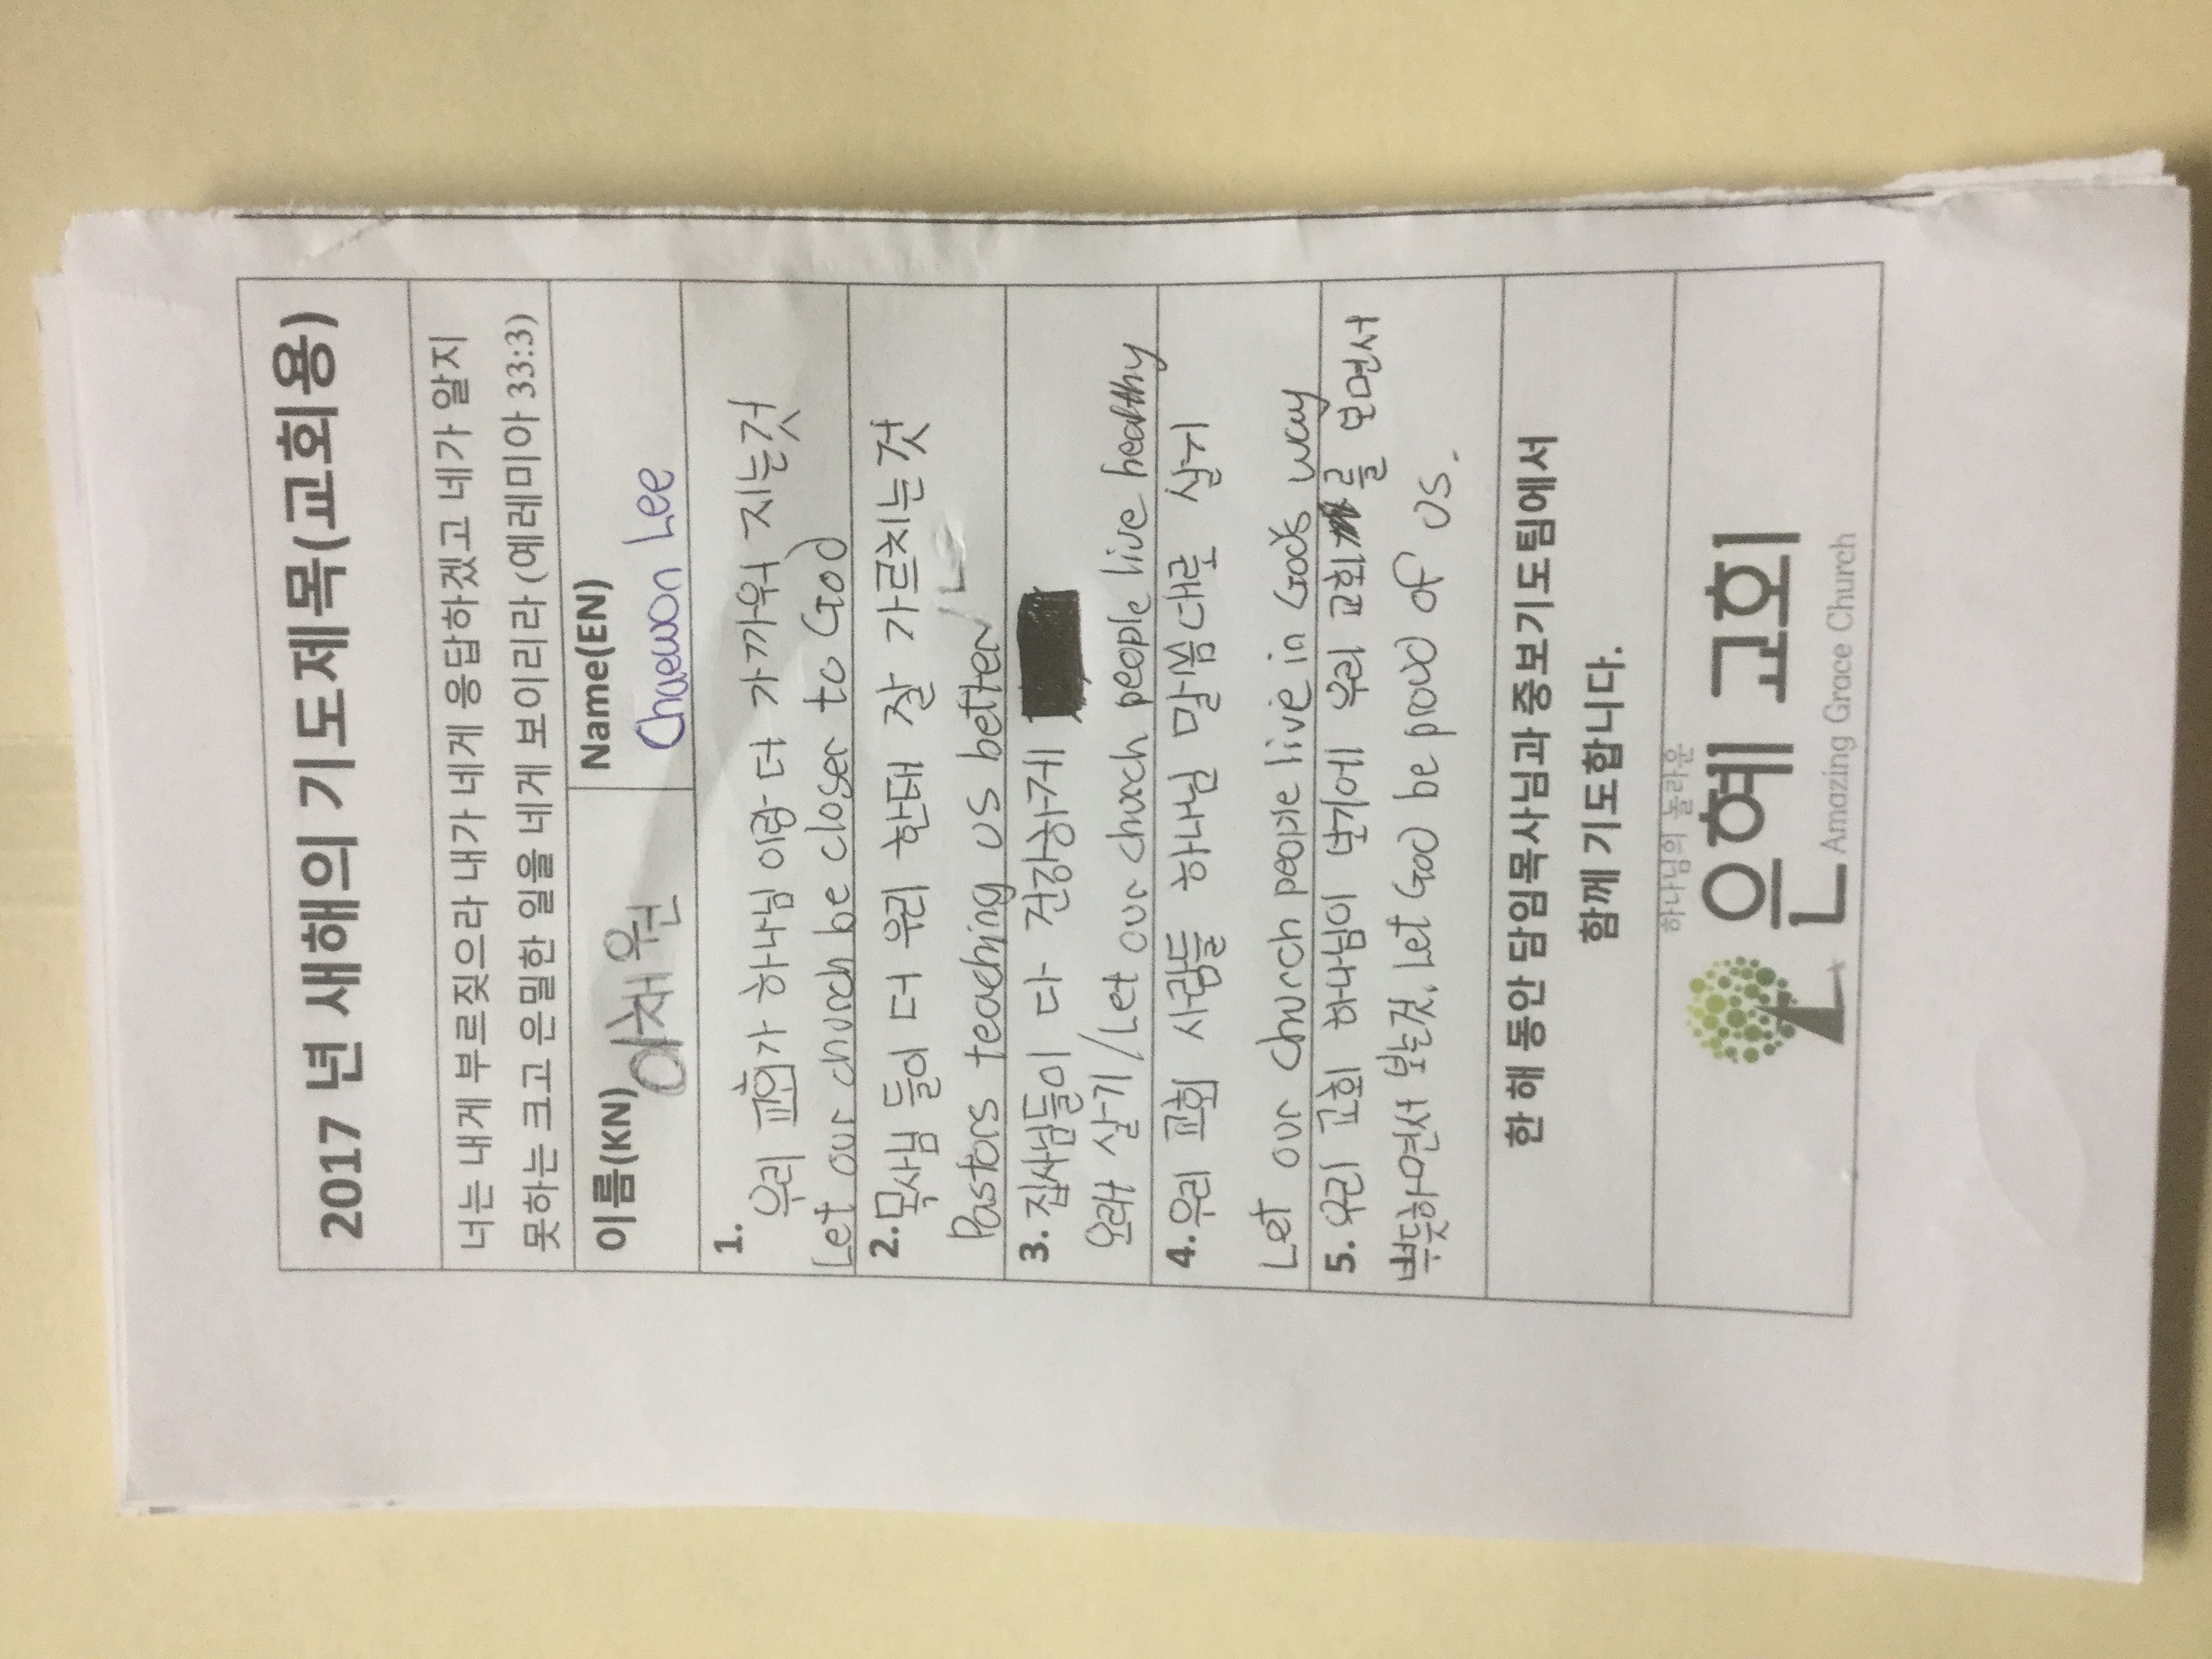 2017 년 새해의 기도제목(교회용)
너는 내게 부르짖으라 내가 네게 응답하겠고 네가 알지
못하는 크고 은밀한 일을 네게 보이리라 (예레미아 33:3)
이름(KN) 이채원
Name(EN) Chaewon Lee
1. 우리 교회가 하나님 이랑 더 가까워 지는것
Let our church be closer to God
2. 목사님 들이 더 우리 한태 잘 가르치는것
Pastors teaching us better
3. 집사님들이 다 건강하게
오래 살기/Let our church people live healthy
4. 우리 교회 사람들 하나님 말씀대로 살기
Let our church people live in God's way
5. 우리 교회 하나님이 보기에 우리 교회를 보면서
뿌듯하면서 보는것. Let God be proud of us.
한 해 동안 담임목사님과 중보기도팀에서
함께 기도합니다.
하나님의 놀라운
은혜 교회
Amazing Grace Church